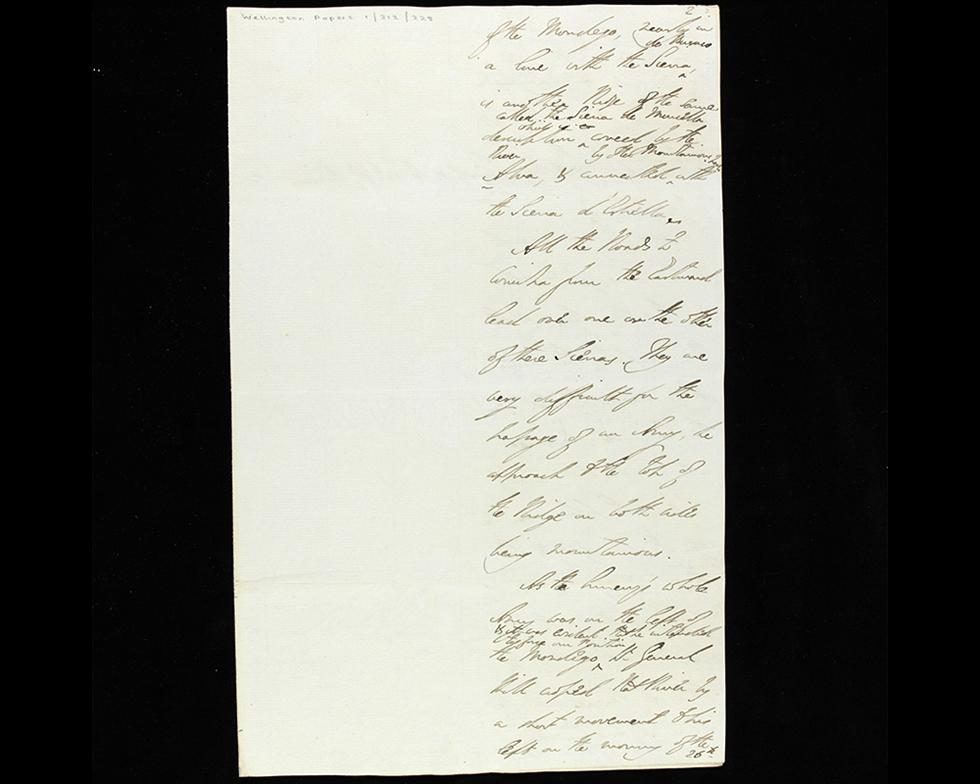 Wellington Papers 1/312/228
2
of the Mondego, nearly in
de Busaco
a line with the Sierra,
is another Ridge of the same
called the Sierra de Murcella
description which is covered by the
River by other Mountainous
Alva, & connected with
the Sierra d'Estrella.
All the Roads to
Coimbra from the Eastward
lead over one or the other
of these Sierras. They are
very difficult for the
passage of an Army, the
approach to the top of
the Ridge on both sides
being mountainous.
As the Enemy's whole
Army was on the left of
& it was evident that he intended
to force our Position
the Mondego, Lt General
Hill crossed that River by
a short movement to his
left on the morning of the
26th